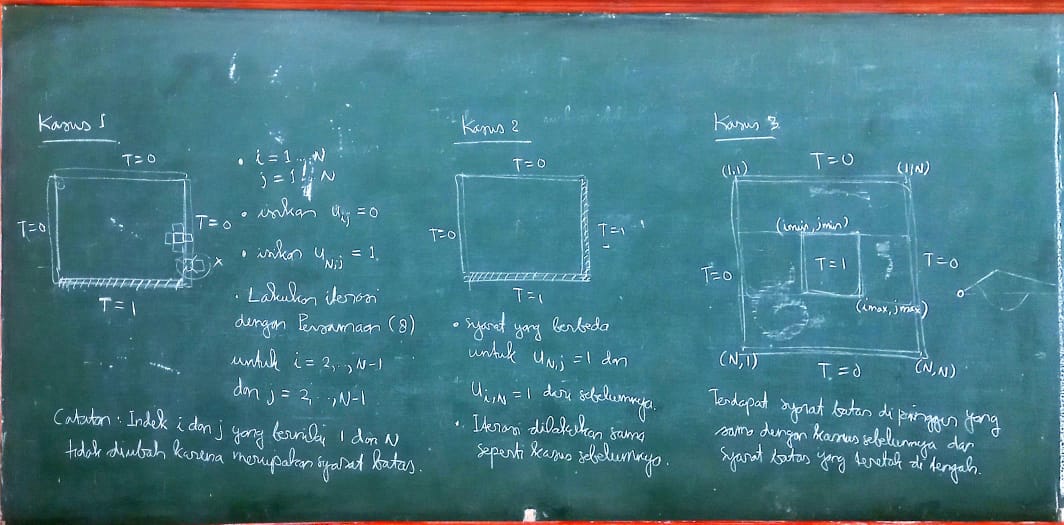 Kasus 1
T=0
T=0
T=0
x
T=1
• i = 1 ... N
j = 1 ... N
• isikan u_{ij} = 0
• isikan u_{N,j} = 1.
• Lakukan iterasi
dengan Persamaan (8)
untuk i = 2, .., N-1
dan j = 2, .., N-1
Catatan : Indek i dan j yang bernilai 1 dan N
tidak diubah karena merupakan syarat batas.
Kasus 2
T=0
T=0
T=1
T=1
• Syarat yang berbeda
untuk u_{N,j} = 1 dan
u_{i,N} = 1 dari sebelumnya.
• Iterasi dilakukan sama
seperti kasus sebelumnya.
Kasus 3
(1,1)
T=0
(1,N)
(imin, jmin)
T=0
T=1
T=0
(imax, jmax)
(N,1)
T=0
(N,N)
Terdapat syarat batas di pinggir yang
sama dengan kasus sebelumnya dan
syarat batas yang terletak di tengah.